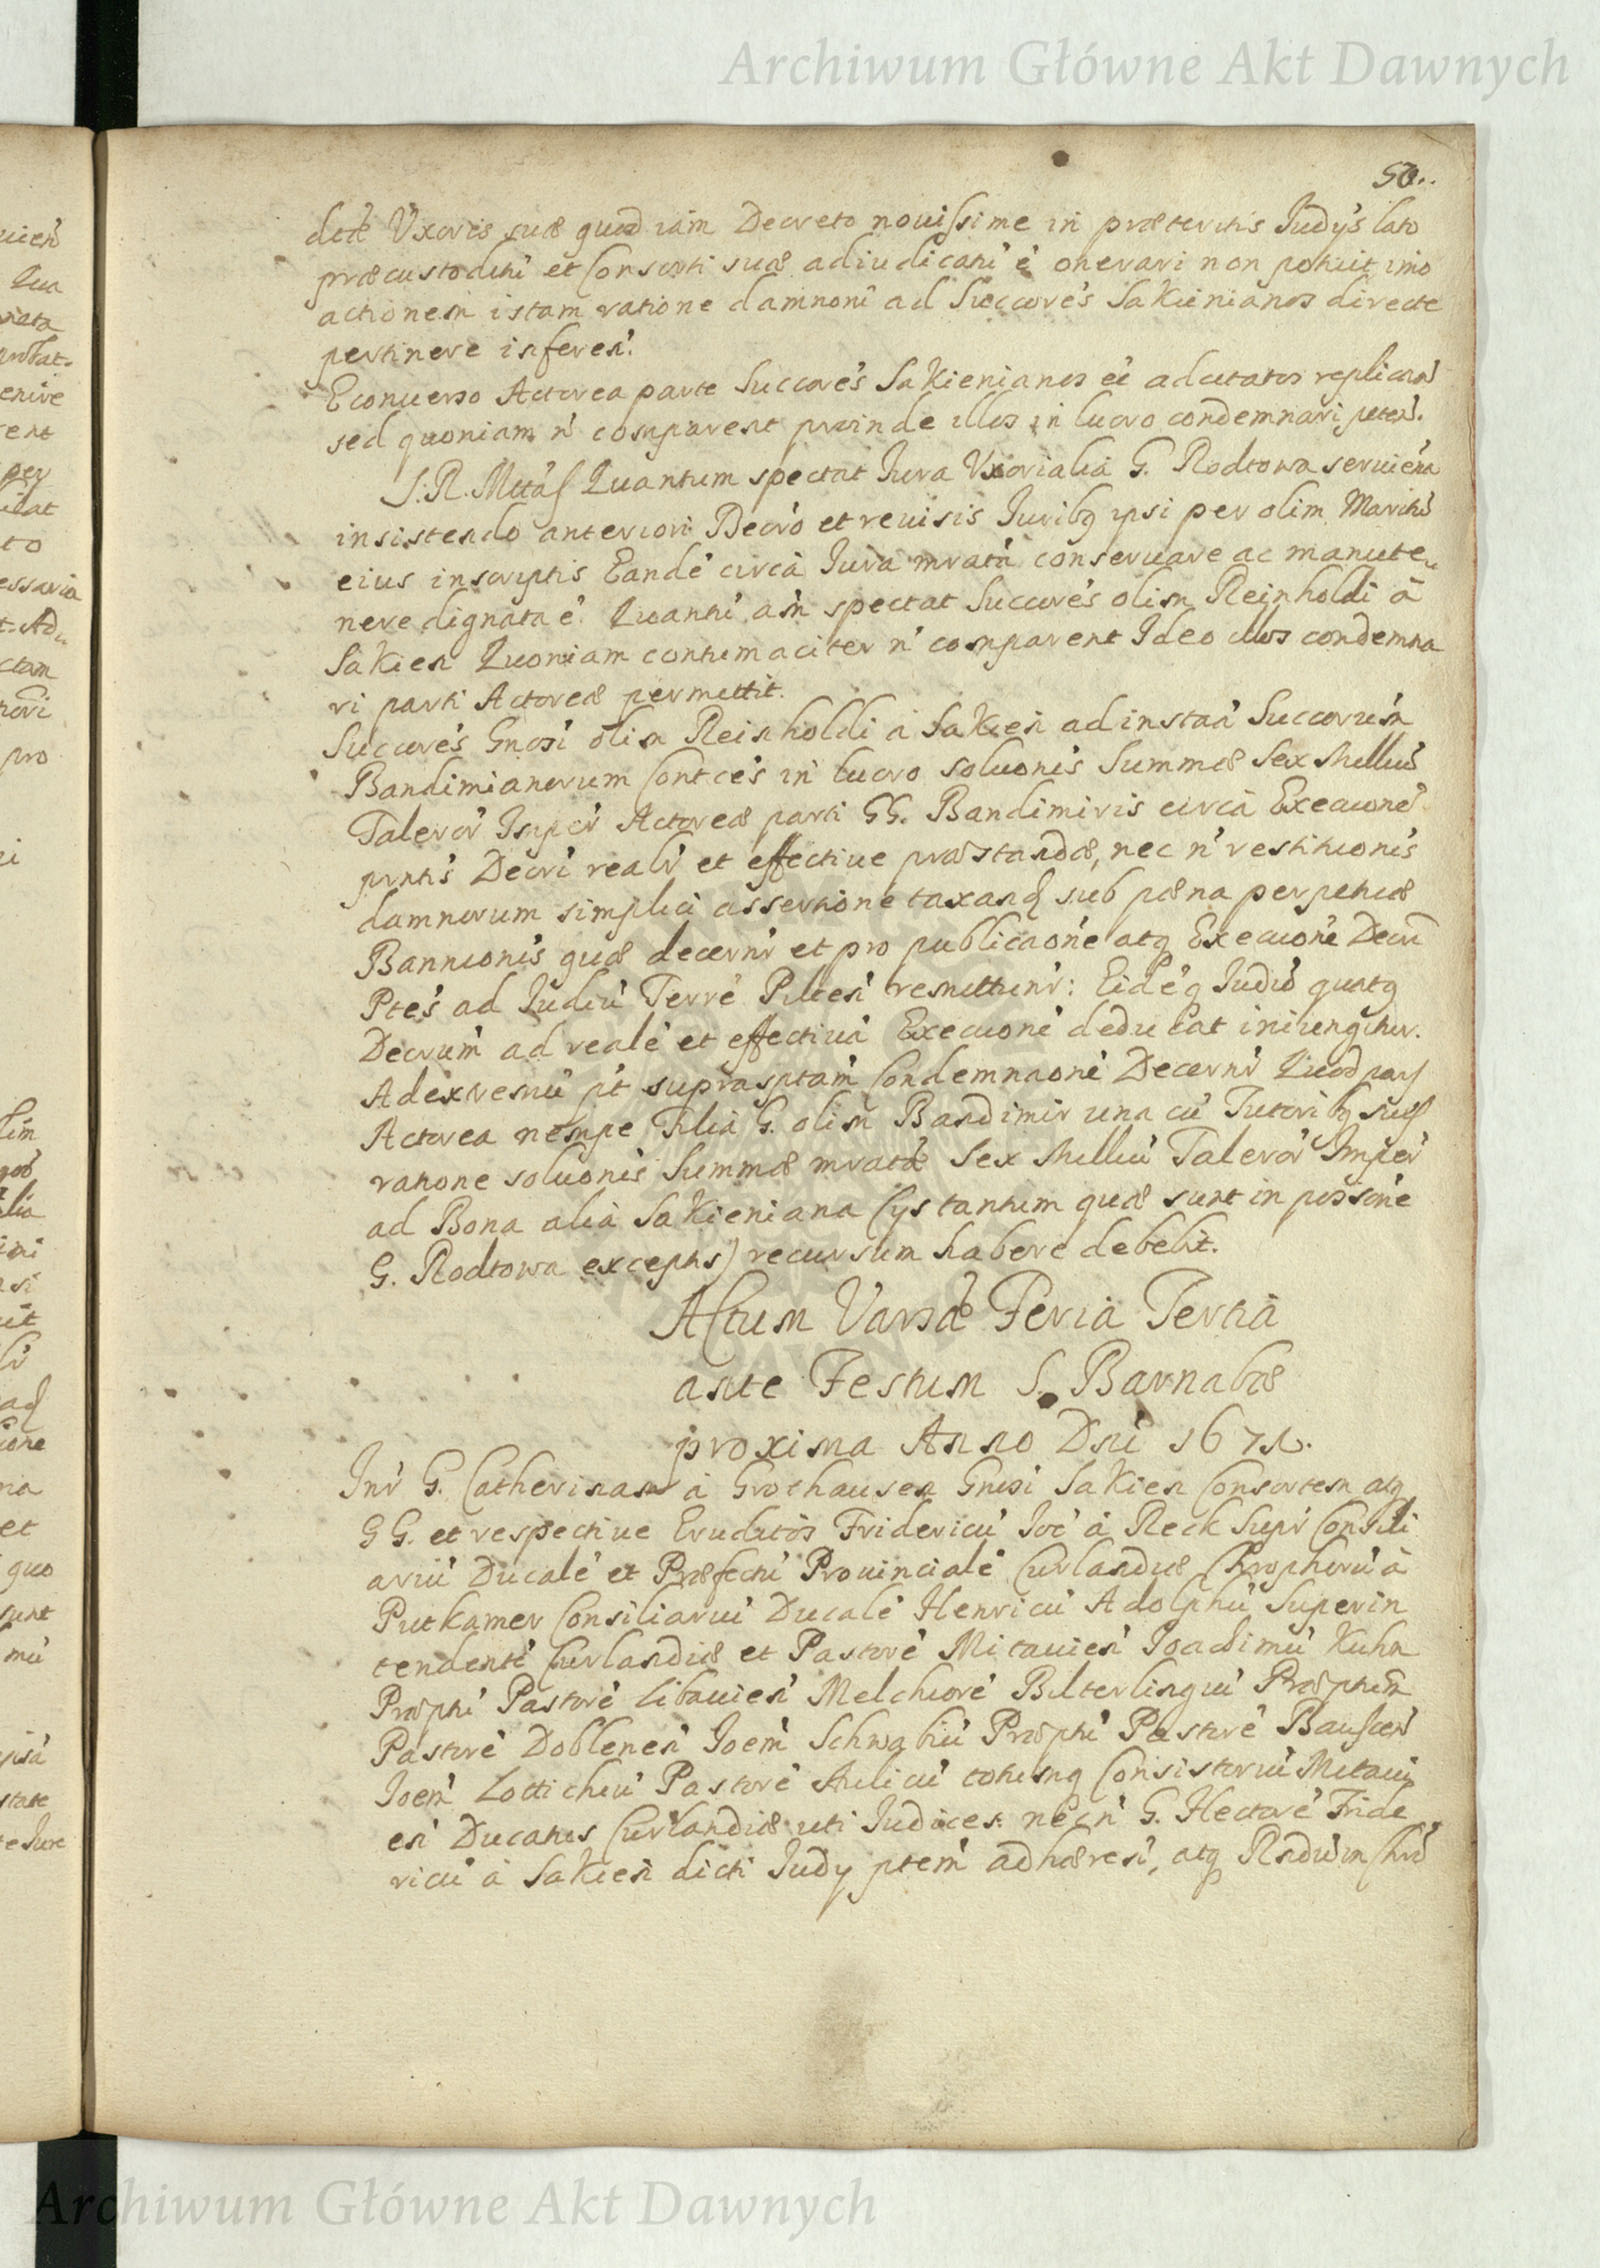 Archiwum Główne Akt Dawnych
50..
dotæ Vxoris suæ quod iam Decreto nouissime in præteritis Judijs lato
præcustoditũ et Consorti suæ adiudicatũ é onerari non potuit imo
actionem istam ratione damnorũ ad Succorẽs Sakienianos directe
pertinere inferen̄.
Econuerso Actorea parte Succorẽs Sakienianos eẽ adcitatos replican̄
sed quoniam n̄ comparent proinde illos in lucro condemnari peten̄.
S: R. Mttas Quantum spectat Iura Vxorialia G. Rodtowa seruien̄a
insistendo anteriori Decrò et reuisis Juribq ipsi per olim Maritũ
eius inscriptis Eandẽ circa Iura mratã conseruare ac manute„
nere dignata é. Quantũ aũ spectat Succorẽs olim Reinholdi à
Sakien Quoniam contumaciter n̄ comparent Ideo illos condemna
ri parti Actoreæ permittit.
Succorẽs Gnosi olim Reinholdi à Sakien ad instan̄ Succorum
Bandimianorum Contcẽs in lucro soluonis Summæ Sex Milliũ
Taleror̄ Imper̄ Actoreæ parti GG. Bandimiris circa Execuonẽ
pn̄tis Decri realr̄ et effectiue præstandæ, nec n̄ restituonis
damnorum simplici assertione taxand sub pæna perpetuæ
Bannionis quæ decernr̄ et pro publicaone atq Execuone Decri
Ptes ad Iudiũ Terrẽ Pilten̄ remittunr̄: Eidẽq Judiò quatq
Decrum ad realẽ et effectiuã Execuonẽ deducat iniungitur.
Ad extremũ pt suprasptam Condemnaonẽ Decernr̄ Quod pars
Actorea nempe Filia G. olim Bandimir una cũ Tutoribq suis
ratione soluonis Summæ mratæ Sex Milliũ Talerór Imper̄
ad Bona alia Sakieniana (ijs tantum quæ sunt in possone
G. Rodtowa exceptis) recursum habere debebit.
Actum Varsæ Feria Tertia
ante Festum S. Barnabæ
proxima Anno Dni 1671.
Inr̄ G. Catherinam à Grothausen Gnosi Sakien Consortem atq
GG. et respectiue Eruditos Fridericũ Joẽ à Reck Supr̄ Consili
ariũ Ducalẽ et Præfectũ Prouincialẽ Curlandiæ Chrophorũ à
Putkamer Consiliariũ Ducalẽ Henricũ Adolphũ Superin
tendentẽ Curlandiæ et Pastorẽ Mitauien̄ Joachimũ Kuhn
Præptũ Pastorẽ Libauien̄ Melchiorẽ Bilterlingiũ Præptum
Pastorẽ Doblenen̄ Joem̄ Schwabiũ Præptũ Pastorẽ Bauscen̄
Joem̄ Lottichiũ Pastorẽ Aulicũ totumq Consistoriũ Mitaui
en̄ Ducatus Curlandiæ uti Judices. nec n̄ G. Hectorẽ Fride
ricũ à Sakien dicti Judij ptem̄ adhæren̄, atq Rndum Chrõ
Archiwum Główne Akt Dawnych